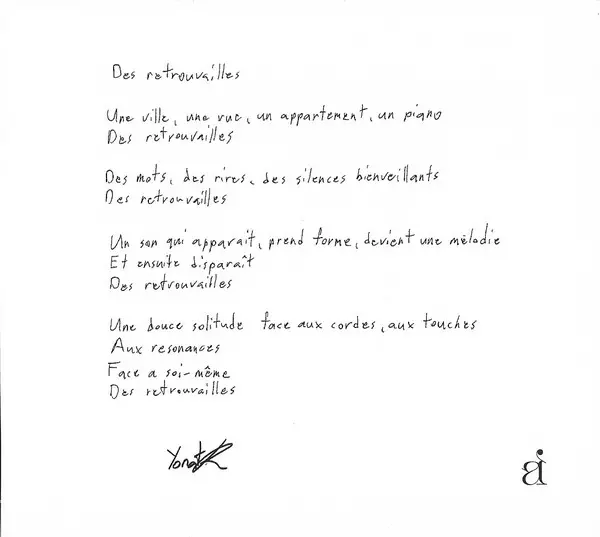 Des retrouvailles
Une ville, une rue, un appartement, un piano
Des retrouvailles
Des mots, des rires, des silences bienveillants
Des retrouvailles
Un son qui apparait, prend forme, devient une mélodie
Et ensuite disparaît
Des retrouvailles
Une douce solitude face aux cordes, aux touches
Aux resonances
Face a soi-même
Des retrouvailles